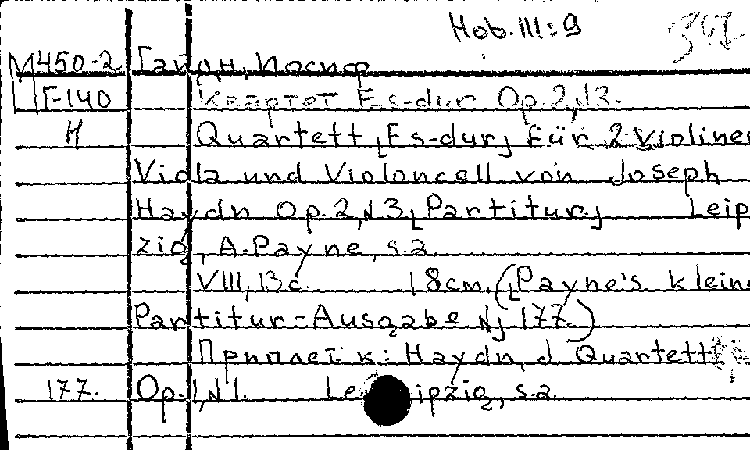 Hob. III:9
М450-2 Гайдн, Иосиф
Г-140 Квартет Es-dur Op. 2, N3.
H Quartett [Es-dur] für 2 Violinen
Viola und Violoncell von Joseph
Haydn Op. 2, N3, [Partitur] Leip-
zig, A. Payne, s.a.
VIII, 13 c. 18 cm. ([Payne's kleine
Partitur=Ausgabe N] 177.)
Приплет. к: Haydn, J. Quartett
177. Op. 1, N1. Leipzig, s.a.